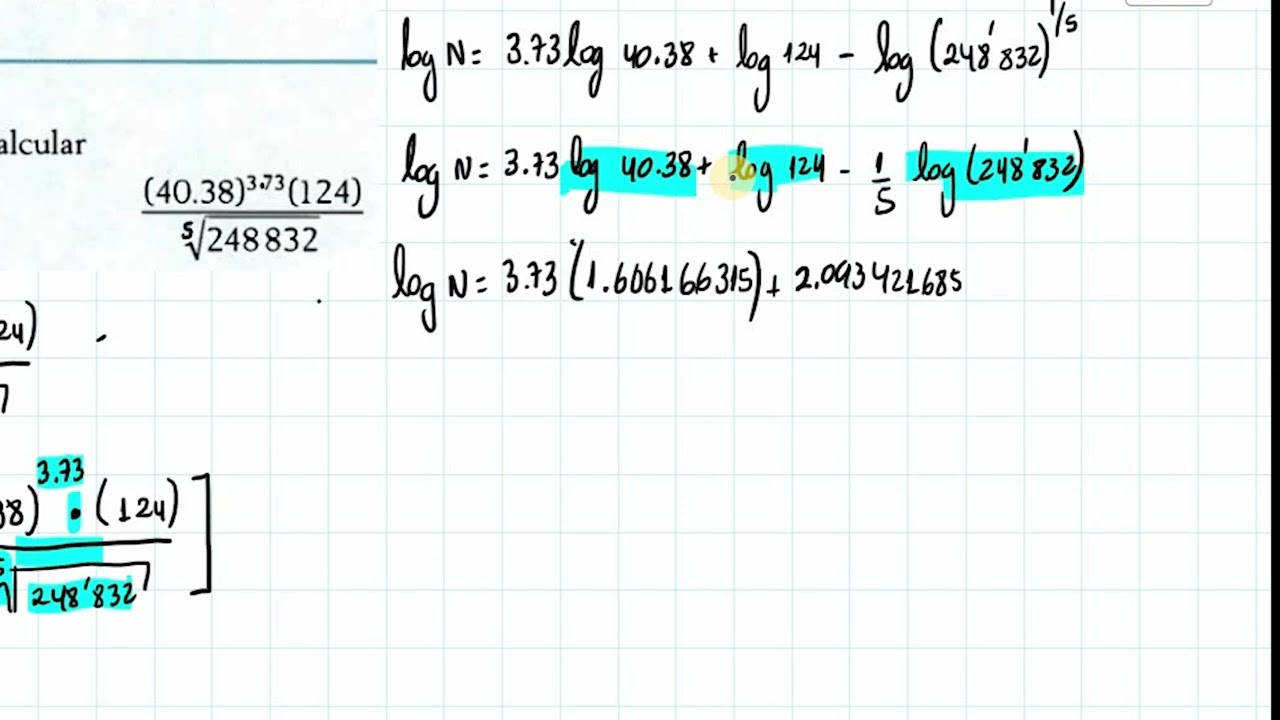 log N = 3.73 log 40.38 + log 124 - log (248'832)^1/5
alcular
(40.38)^3.73 (124)
5√248 832
log N = 3.73 log 40.38 + log 124 - 1/5 log (248'832)
log N = 3.73 (1.606166315) + 2.093421685
24)
3.73
38) • (124) ]
5√248'832